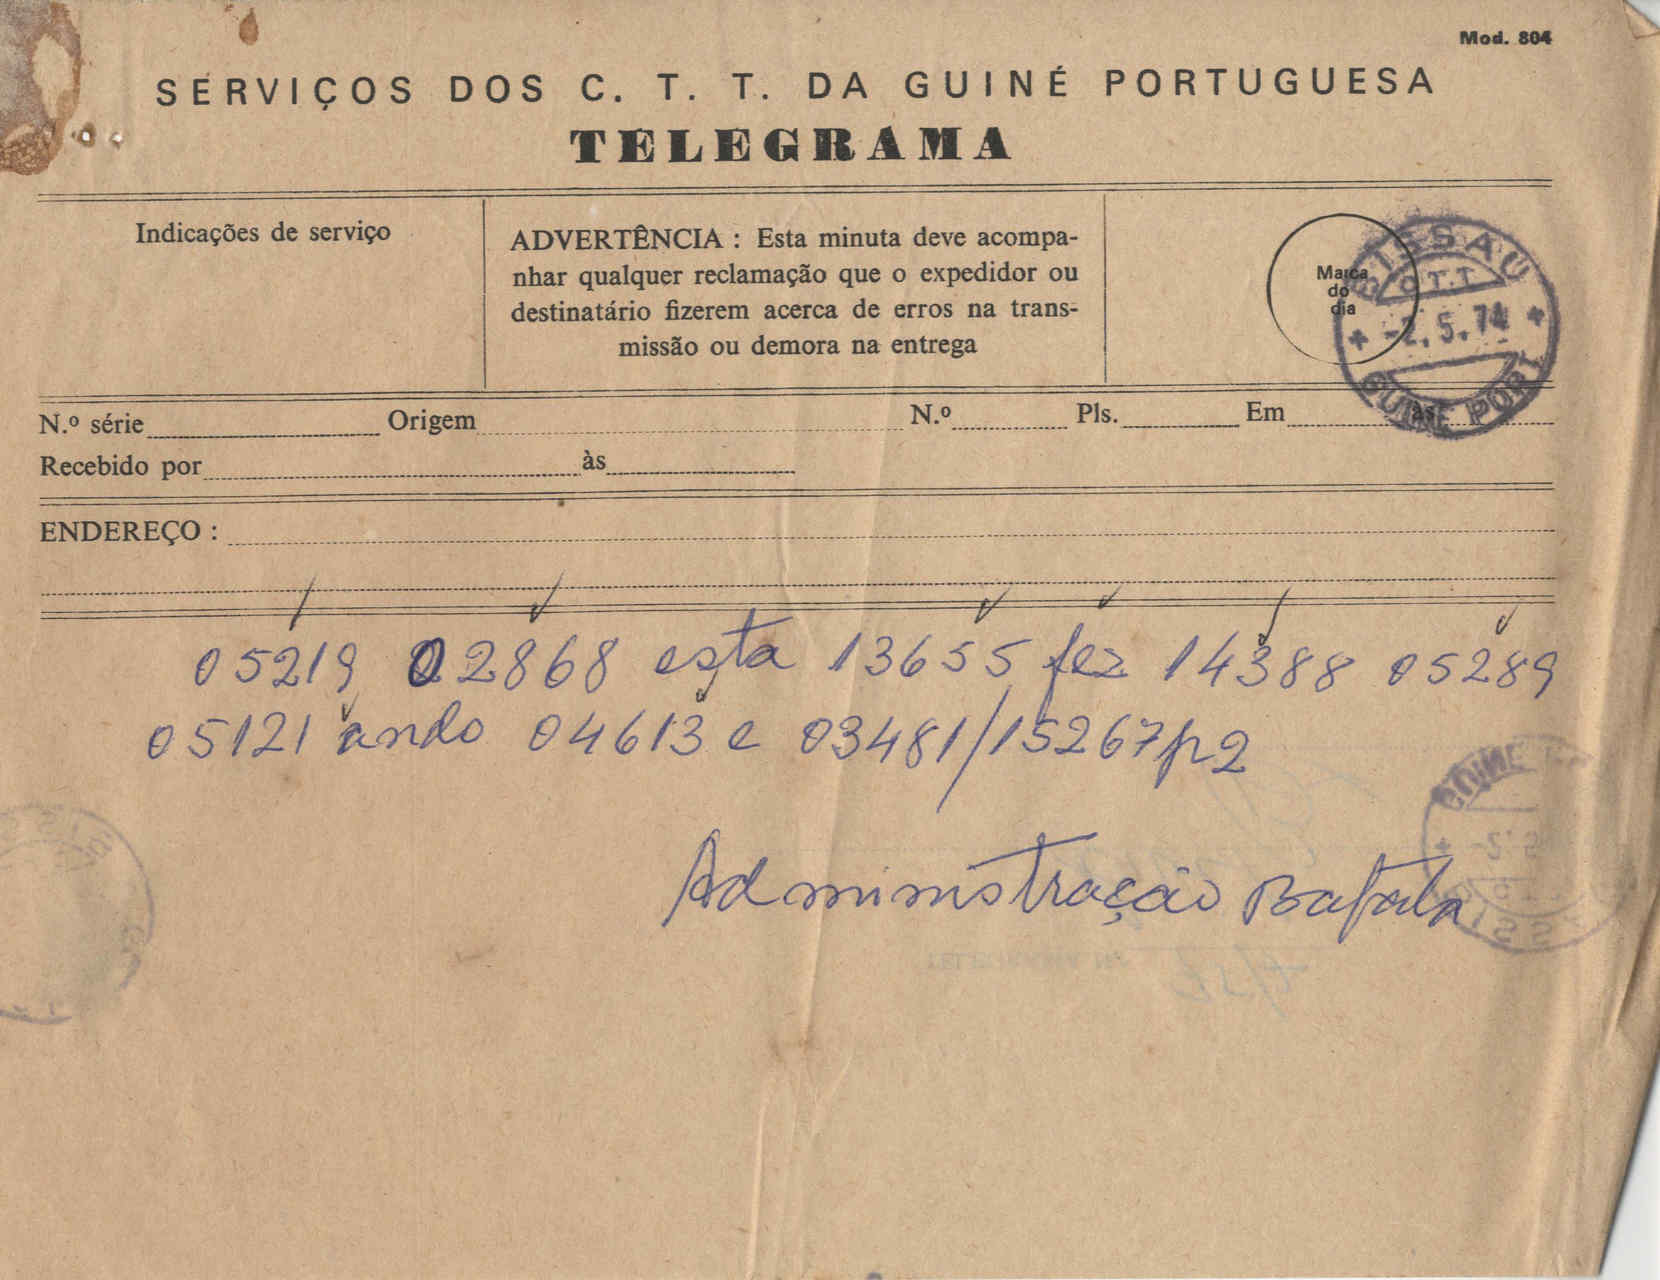 Mod. 804
SERVIÇOS DOS C. T. T. DA GUINÉ PORTUGUESA
TELEGRAMA
Indicações de serviço
ADVERTÊNCIA : Esta minuta deve acompa-
nhar qualquer reclamação que o expedidor ou
destinatário fizerem acerca de erros na trans-
missão ou demora na entrega
Marca
do
dia
BISSAU
C.T.T.
-2.5.74
GUINÉ PORT.
N.º série Origem N.º Pls. Em às
Recebido por às
ENDEREÇO :
05219 02868 esta 13655 fez 14388 05289
05121 ando 04613 e 03481/15267p2
Administração Bafata